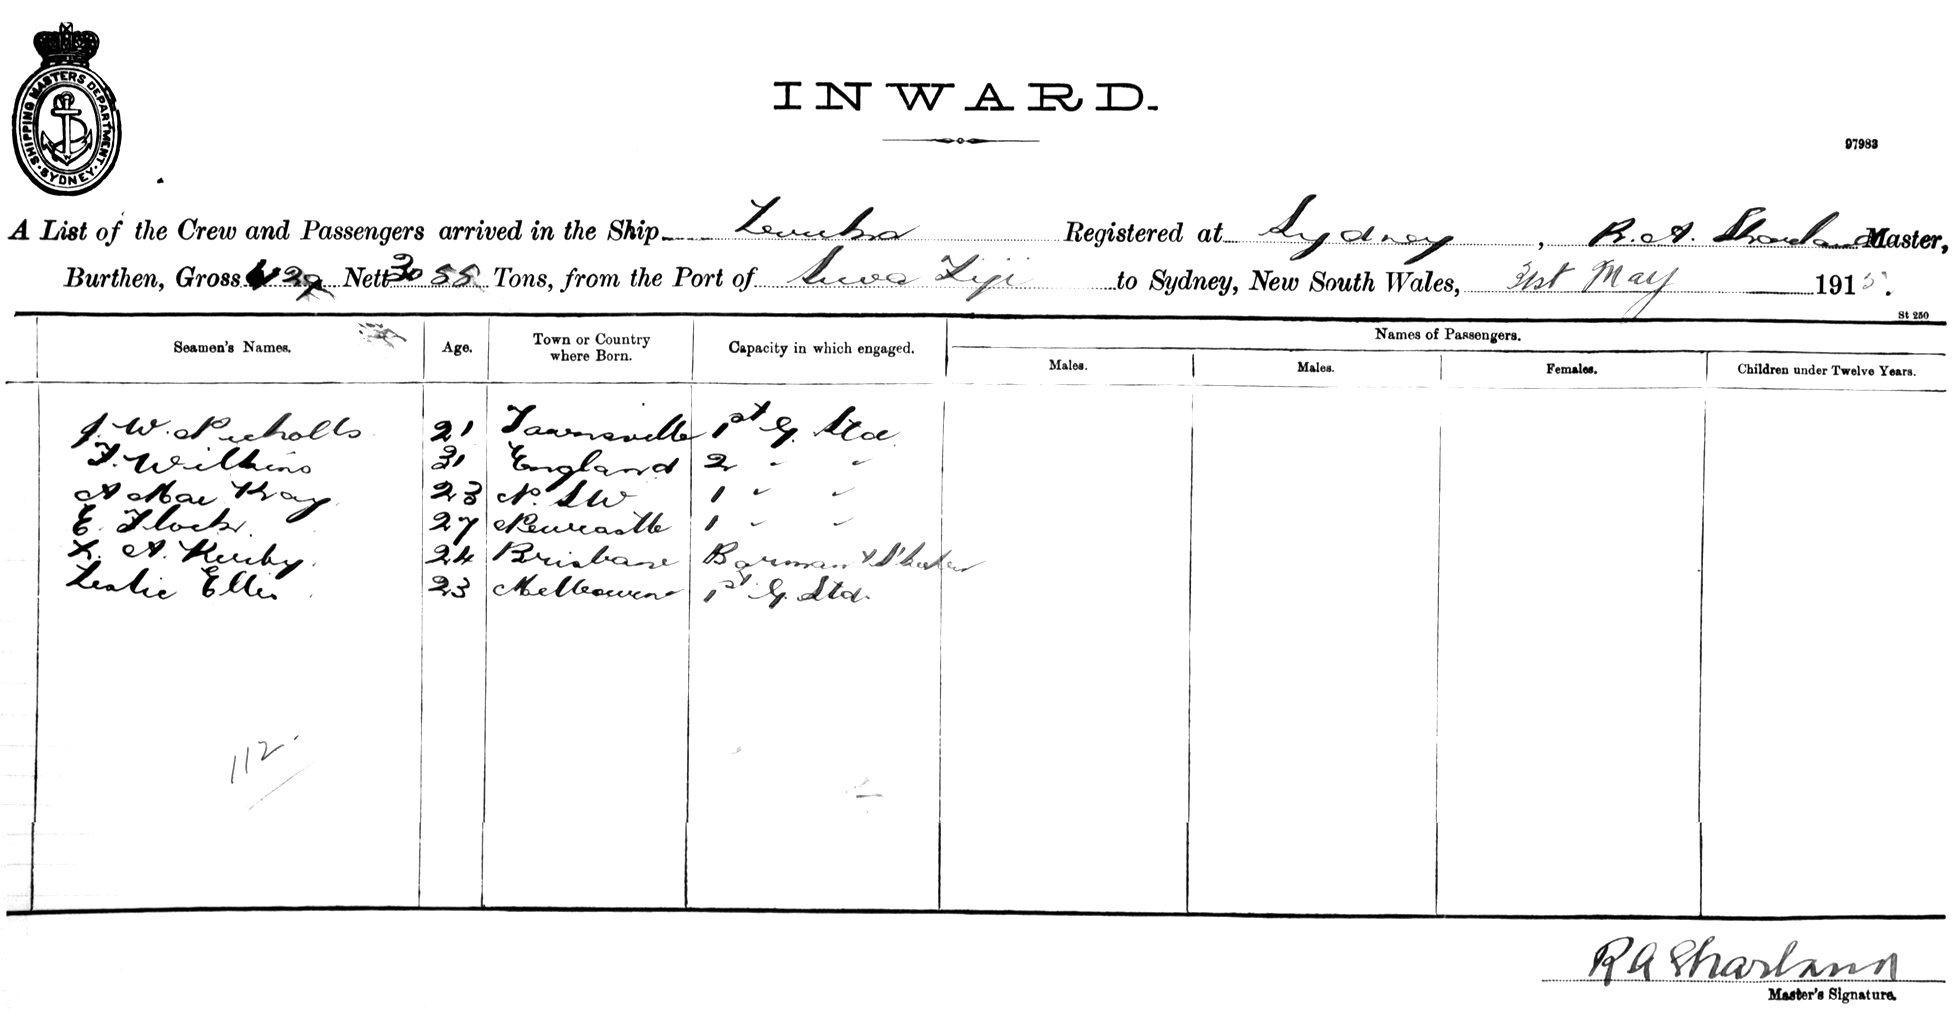 SHIPPING MASTERS DEPARTMENT. SYDNEY.
INWARD.
97983
A List of the Crew and Passengers arrived in the Ship Levuka Registered at Sydney, R. A. Sharland Master,
Burthen, Gross Nett 3055 Tons, from the Port of Suva Fiji to Sydney, New South Wales, 31st May 1915.
St 250
Seamen's Names. Age. Town or Country where Born. Capacity in which engaged. Names of Passengers.
Males. Males. Females. Children under Twelve Years.
J. W. Nicholls 21 Townsville 1st G. Std.
F. Wilkins 31 England 2 " "
A MacKay 23 N. S W 1 " "
E. Flock 27 Newcastle 1 " "
L. A. Kirby 24 Brisbane Barman &
Leslie Ellis 23 Melbourne 1st G. Std.
112
R A Sharland
Master's Signature.